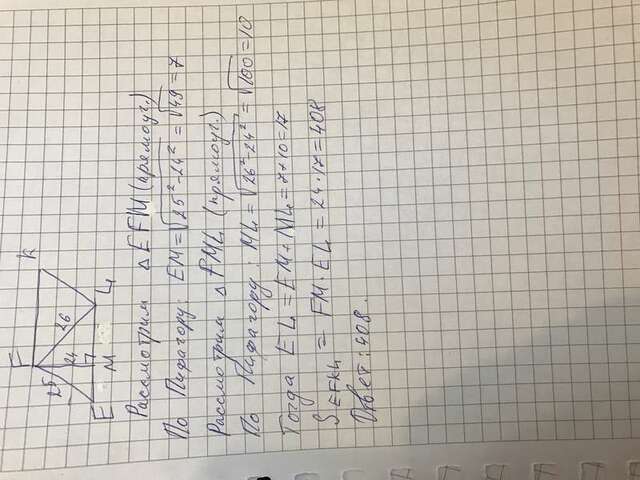 F
K
25
24
26
E
M
L
Рассмотрим △EFM (прямоуг.)
По Пифагору: EM = √25² - 24² = √49 = 7
Рассмотрим △FML (прямоуг.)
По Пифагору: ML = √26² - 24² = √100 = 10
Тогда EL = EM + ML = 7 + 10 = 17
S EFKL = FM · EL = 24 · 17 = 408
Ответ: 408.